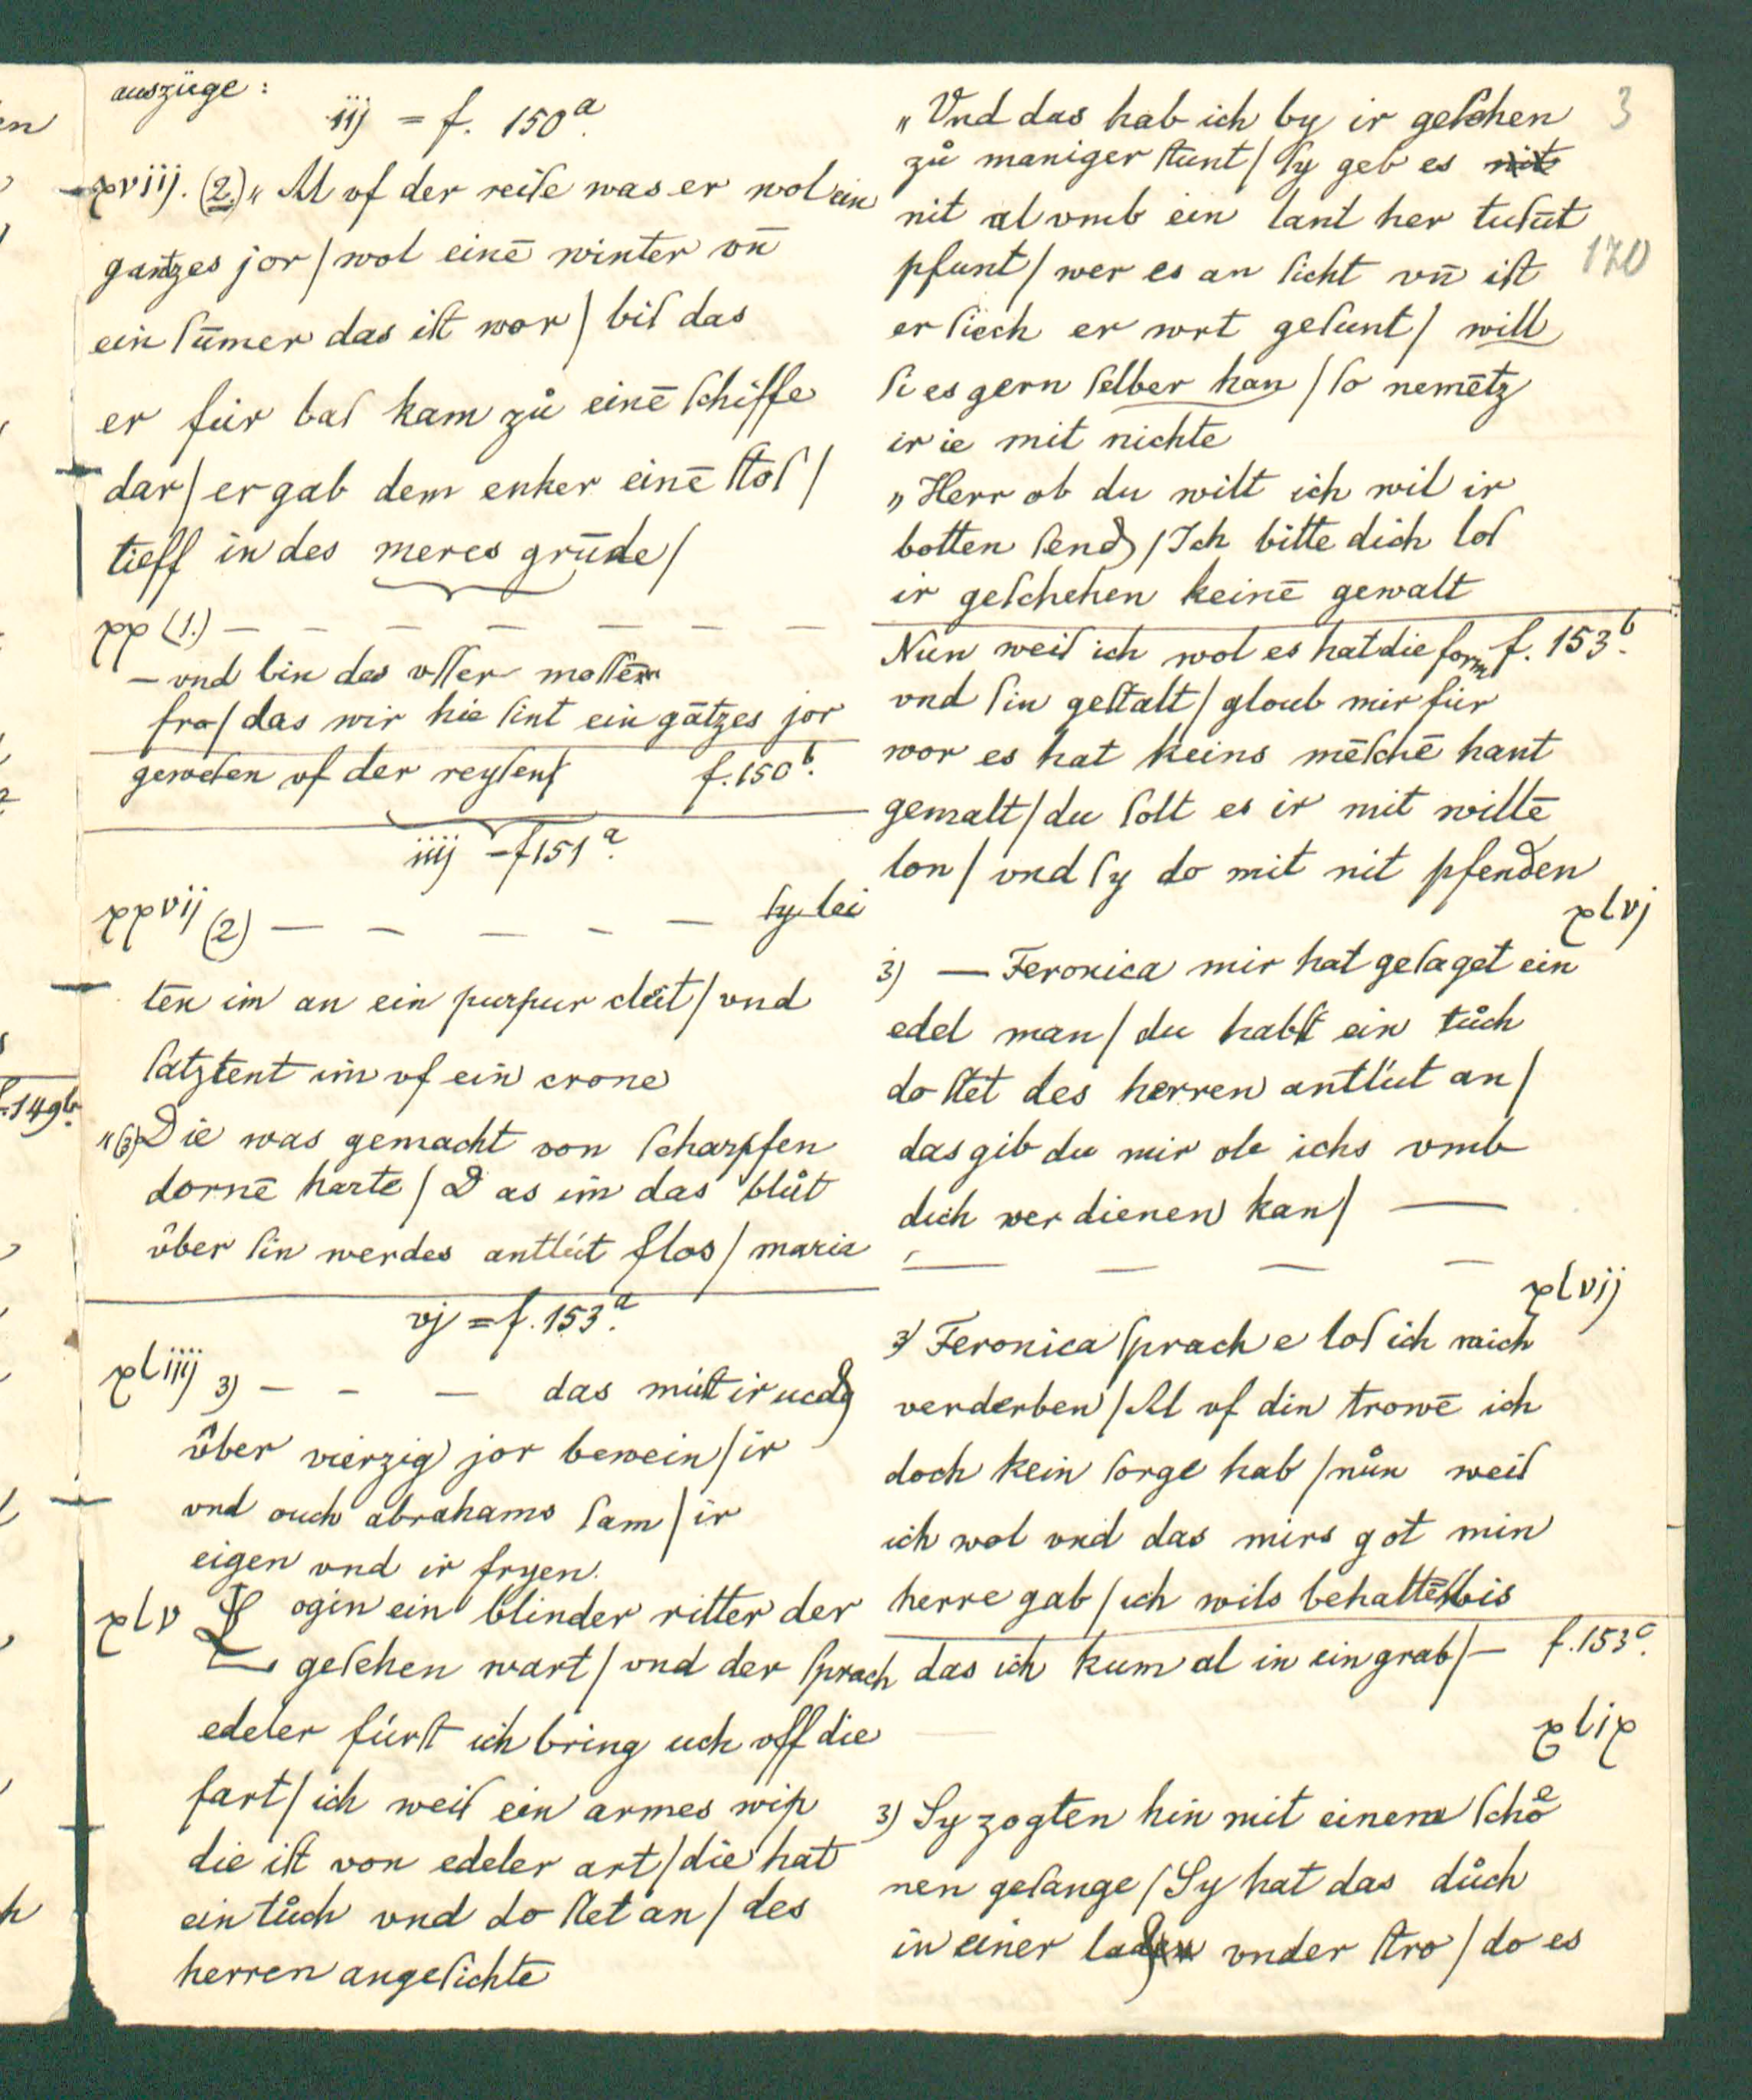 auszüge:
iij = f. 150a.
xviij. (2.) „Al vf der reiſe was er wol ein
gantzes jor / wol einē winter vn̄
ein ſūmer das iſt wor / biſ das
er für baſ kam zů einē ſchiffe
dar / er gab dem enker einē ſtoſ /
tieff in des meres grūde /
xx (1.) — — — — — — —
— vnd bin des vſſer moſſen
fro / das wir hie ſint ein gātzes jor
geweſen vf der reyſen f. 150b.
iiij = f 151a.
xxvij (2) — — — — — ſy lei
ten im an ein purpur cleit / vnd
ſatztent im vf ein crone
„(3) Die was gemacht von ſcharpfen
dornē harte / Das im das blůt
über ſin werdes antlüt flos / maria
vj = f. 153a.
xliiij 3) — — — das müſt ir
über vierzig jor bewein / ir
vnd ouch abrahams ſam / ir
eigen vnd ir fryen.
xlv Login ein blinder ritter der
geſehen wart / vnd der ſprach
edeler fürſt ich bring uch vff die
fart / ich weiſ ein armes wip
die iſt von edeler art / die hat
ein tůch vnd do ſtet an / des
herren angeſichte
„Vnd das hab ich by ir geſehen
zů maniger ſtunt / ſy geb es nit
nit al vmb ein lant her tuſūt
pfunt / wer es an ſicht vn̄ iſt
er ſiech er wrt geſunt / will
ſi es gern ſelber han / ſo nemētz
ir ie mit nichte
„Herr ob du wilt ich wil ir
botten ſend / Ich bitte dich loſ
ir geſchehen keinē gewalt
Nün weiſ ich wol es hat die form f. 153b.
vnd ſin geſtalt / gloub mir für
wor es hat keins mēſchē hant
gemalt / du ſolt es ir mit willē
lon / vnd ſy do mit nit pfenden
xlvj
3) — Feronica mir hat geſaget ein
edel man / du habſt ein tůch
do ſtet des herren antlüt an /
das gib du mir ob ichs vmb
dich verdienen kan / —
— — — —
xlvij
3) Feronica ſprach e loſ ich mich
verderben / Al vf din trowē ich
doch kein ſorge hab / nůn weiſ
ich wol vnd das mirs got min
herre gab / ich wils behaltē bis
das ich kum al in ein grab / — f. 153c.
xlix
3) Sy zogten hin mit einem ſchoͤ
nen geſange / Sy hat das důch
in einer laden vnder ſtro / do es
3
170
f. 149b.